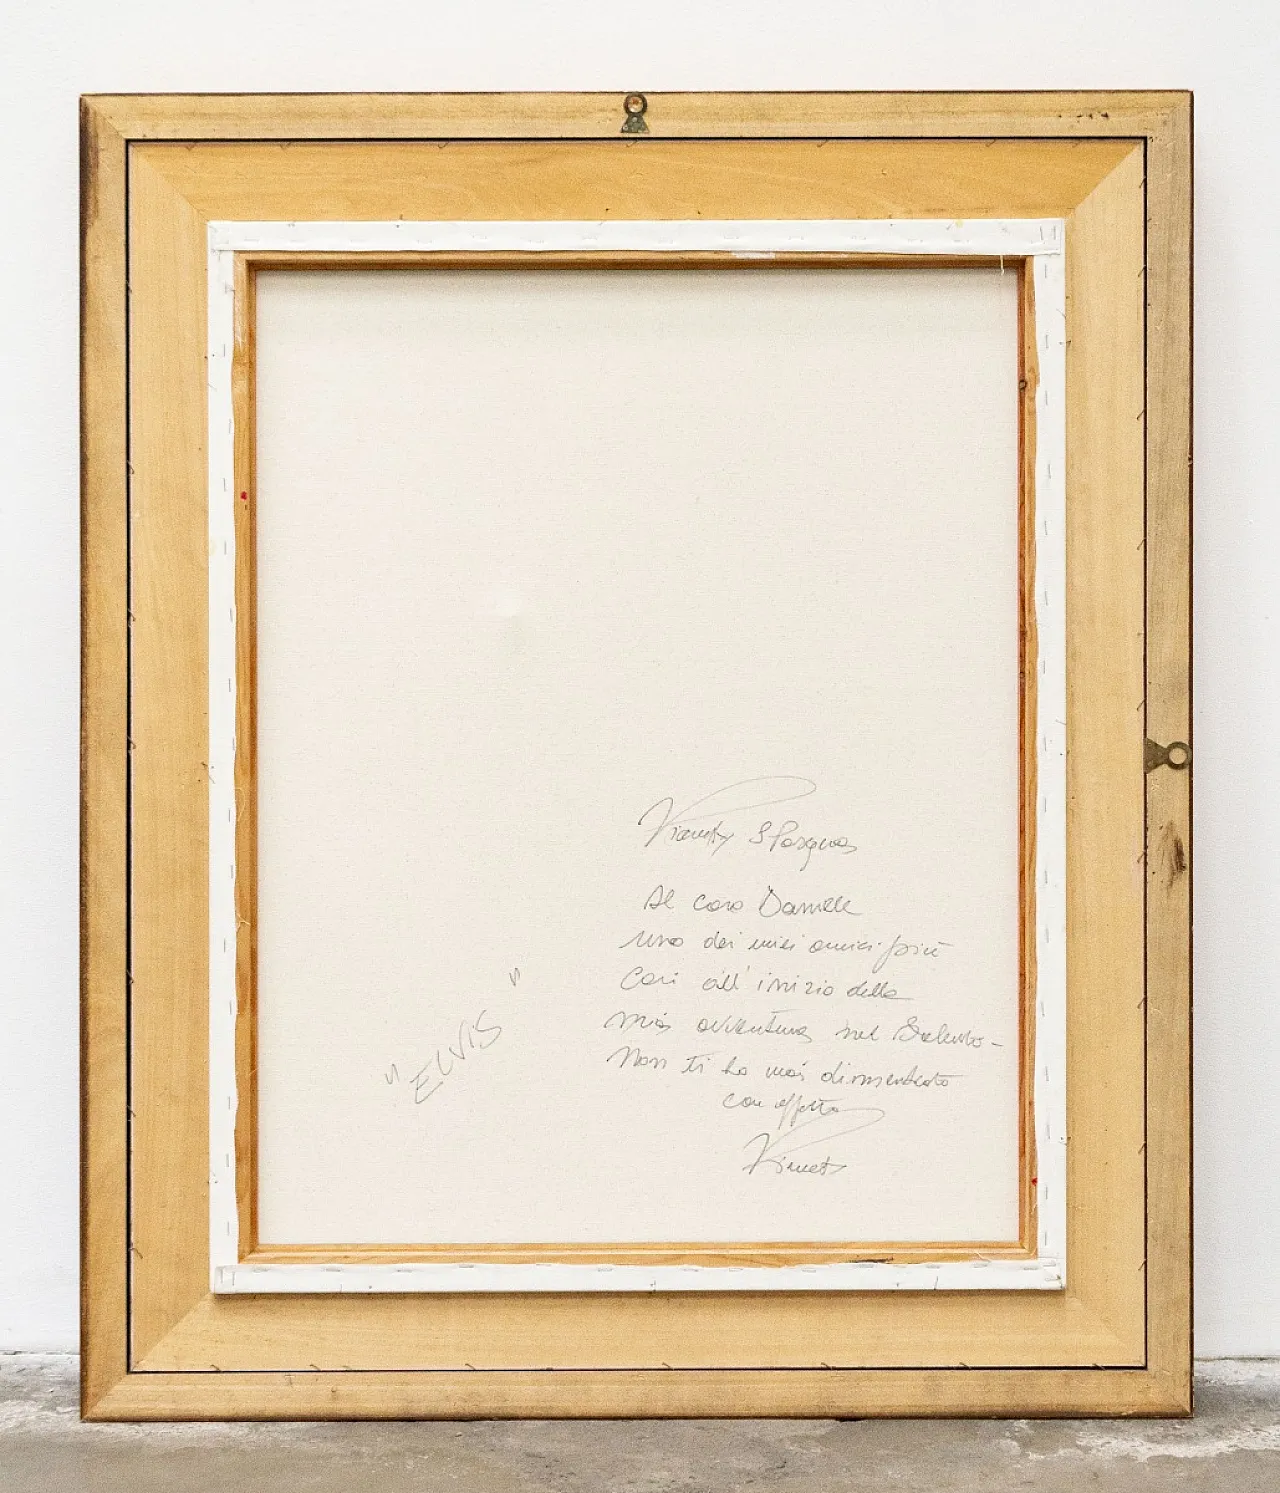 Al caro Daniele
uno dei miei amici più
cari all'inizio della
mia avventura nel Salento -
Non ti ho mai dimenticato
con affetto
"ELVIS"